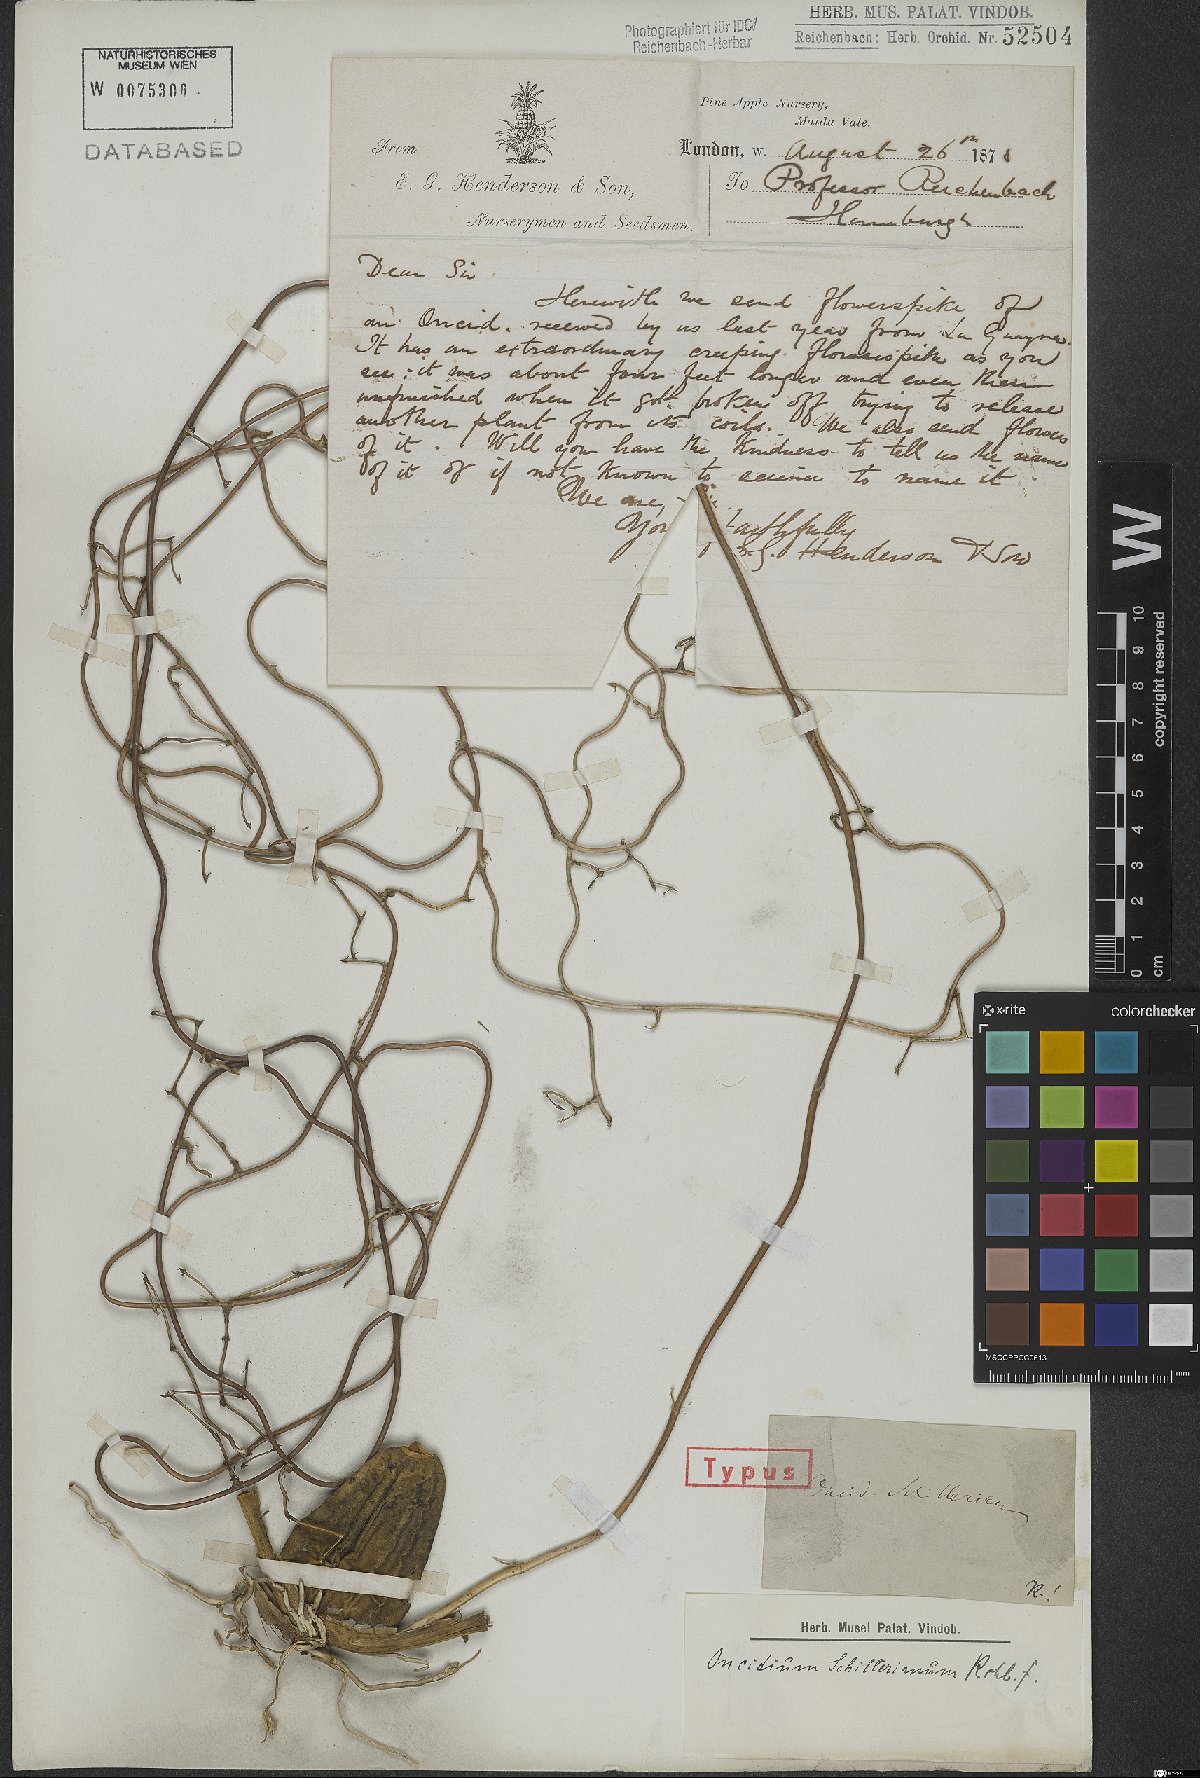 NATURHISTORISCHES
MUSEUM WIEN
W 0075306
DATABASED
Photographiert für IDC/
Reichenbach-Herbar
HERB. MUS. PALAT. VINDOB.
Reichenbach: Herb. Orchid. Nr. 52504
Pine Apple Nursery,
Maida Vale.
London, W. August 26th 1871
From
E. G. Henderson & Son,
Nurserymen and Seedsmen.
To Professor Reichenbach
Hamburgh
Dear Sir
Herewith we send flowerspike of
an Oncid. received by us last year from La Guayra
It has an extraordinary creeping flowerspike as you
see: it was about four feet longer and even then
unfinished when it got broken off trying to release
another plant from its coils. We also send flowers
of it. Will you have the kindness to tell us the name
of it or if not known to science to name it
We are,
faithfully
Henderson & Son
10 9 8 7 6 5 4 3 2 1 0
cm
copyright reserved
W
x-rite colorchecker
MSCCPPCC0613
mm
Typus
Oncid. Schillerian
R!
Herb. Musei Palat. Vindob.
Oncidium Schillerianum Rchb. f.